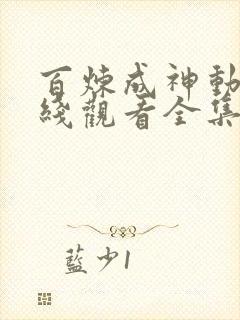 百煉成神動
綫觀看全集
藍少1